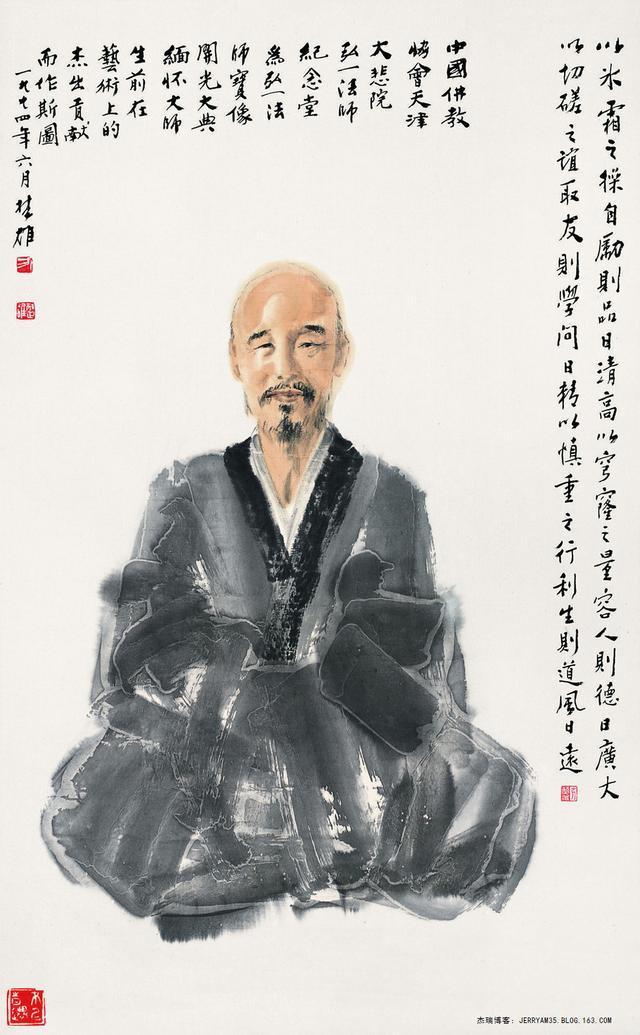 以冰霜之操自勵則品日清高以穹窿之量容人則德日廣大
以切磋之誼取友則學問日精以慎重之行利生則道風日遠
中國佛教
協會天津
大悲院
弘一法師
紀念堂
為弘一法
師寶像
開光大典
緬懷大師
生前在
藝術上的
杰出貢獻
而作斯圖
一九九四年六月楚雄
杰瑞博客：JERRYAM35.BLOG.163.COM